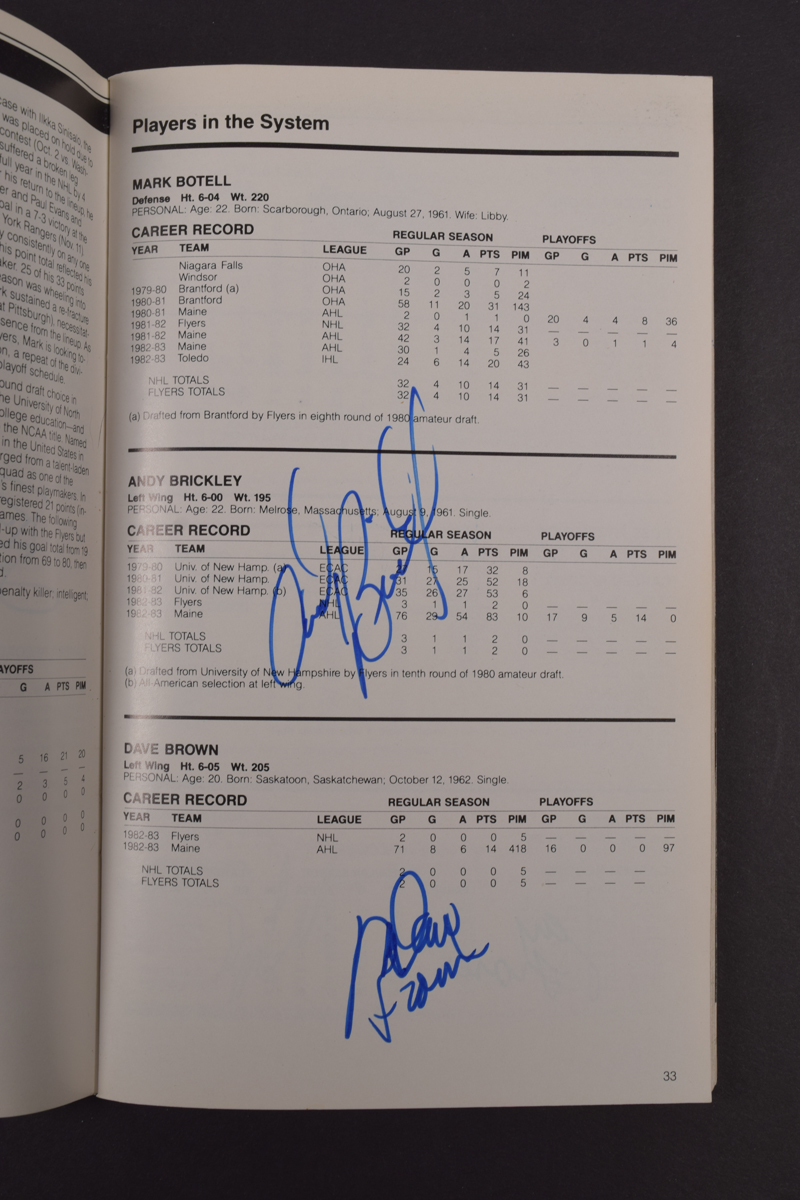 case with Ilkka Sinisalo, the
was placed on hold due to
contest (Oct. 2 vs. Wash-
suffered a broken leg
full year in the NHL by 4
his return to the lineup, he
er and Paul Evans and
oal in a 7-3 victory at the
York Rangers (Nov. 11).
y consistently on any one
his point total reflected his
ker. 25 of his 33 points
ason was wheeling into
k sustained a re-fracture
at Pittsburgh), necessitat-
sence from the lineup. As
yers, Mark is looking to-
n, a repeat of the divi-
layoff schedule.
ound draft choice in
he University of North
ollege education—and
the NCAA title. Named
in the United States in
rged from a talent-laden
quad as one of the
's finest playmakers. In
registered 21 points (in-
ames. The following
-up with the Flyers but
ed his goal total from 19
tion from 69 to 80, then
d.
enalty killer; intelligent;
AYOFFS
G A PTS PIM
5 16 21 20
— — — —
2 3 5 4
0 0 0 0
0 0 0 0
0 0 0 0
Players in the System
MARK BOTELL
Defense Ht. 6-04 Wt. 220
PERSONAL: Age: 22. Born: Scarborough, Ontario; August 27, 1961. Wife: Libby.
CAREER RECORD REGULAR SEASON PLAYOFFS
YEAR TEAM LEAGUE GP G A PTS PIM GP G A PTS PIM
Niagara Falls OHA 20 2 5 7 11
Windsor OHA 2 0 0 0 2
1979-80 Brantford (a) OHA 15 2 3 5 24
1980-81 Brantford OHA 58 11 20 31 143
1980-81 Maine AHL 2 0 1 1 0 20 4 4 8 36
1981-82 Flyers NHL 32 4 10 14 31 — — — — —
1981-82 Maine AHL 42 3 14 17 41 3 0 1 1 4
1982-83 Maine AHL 30 1 4 5 26
1982-83 Toledo IHL 24 6 14 20 43
NHL TOTALS 32 4 10 14 31 — — — — —
FLYERS TOTALS 32 4 10 14 31 — — — — —
(a) Drafted from Brantford by Flyers in eighth round of 1980 amateur draft.
ANDY BRICKLEY
Left Wing Ht. 6-00 Wt. 195
PERSONAL: Age: 22. Born: Melrose, Massachusetts; August 9, 1961. Single.
CAREER RECORD REGULAR SEASON PLAYOFFS
YEAR TEAM LEAGUE GP G A PTS PIM GP G A PTS PIM
1979-80 Univ. of New Hamp. (a) ECAC 15 17 32 8
1980-81 Univ. of New Hamp. ECAC 31 27 25 52 18
1981-82 Univ. of New Hamp. (b) ECAC 35 26 27 53 6
1982-83 Flyers NHL 3 1 1 2 0 — — — — —
1982-83 Maine AHL 76 29 54 83 10 17 9 5 14 0
NHL TOTALS 3 1 1 2 0 — — — — —
FLYERS TOTALS 3 1 1 2 0 — — — — —
(a) Drafted from University of New Hampshire by Flyers in tenth round of 1980 amateur draft.
(b) All-American selection at left wing.
DAVE BROWN
Left Wing Ht. 6-05 Wt. 205
PERSONAL: Age: 20. Born: Saskatoon, Saskatchewan; October 12, 1962. Single.
CAREER RECORD REGULAR SEASON PLAYOFFS
YEAR TEAM LEAGUE GP G A PTS PIM GP G A PTS PIM
1982-83 Flyers NHL 2 0 0 0 5 — — — — —
1982-83 Maine AHL 71 8 6 14 418 16 0 0 0 97
NHL TOTALS 2 0 0 0 5 — — — — —
FLYERS TOTALS 2 0 0 0 5 — — — — —
Dave
Brown
33